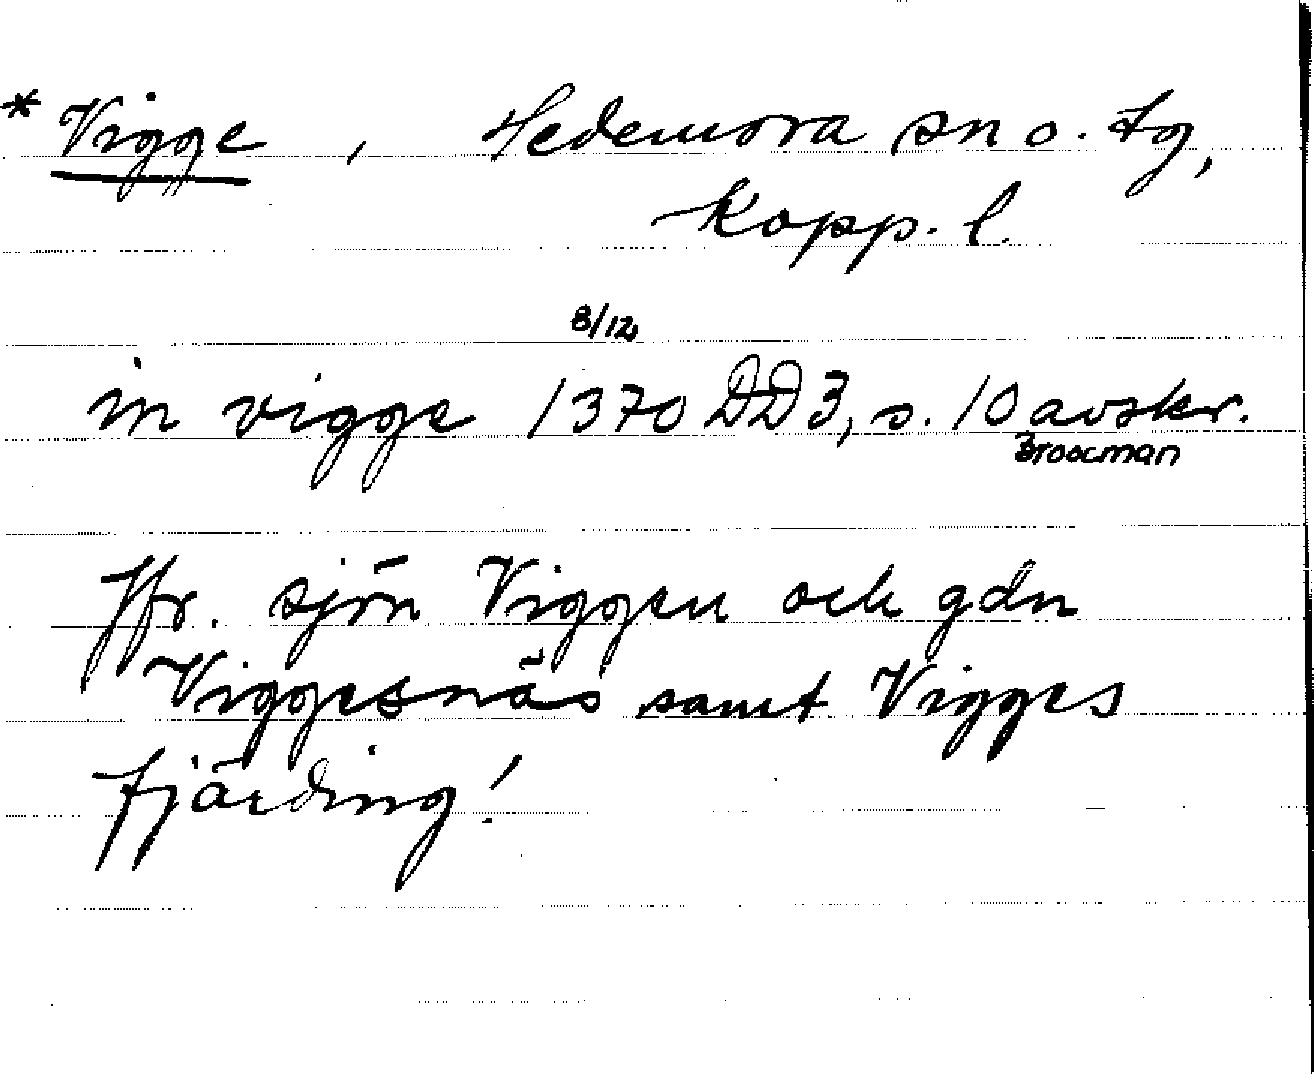 * Vigge, Hedemora sn o. tg,
Kopp. l.
8/12
in vigge 1370 DD 3, s. 10 avskr.
Broocman
Jfr. sjön Viggen och gdn
Viggesnäs samt Vigges
fjärding!